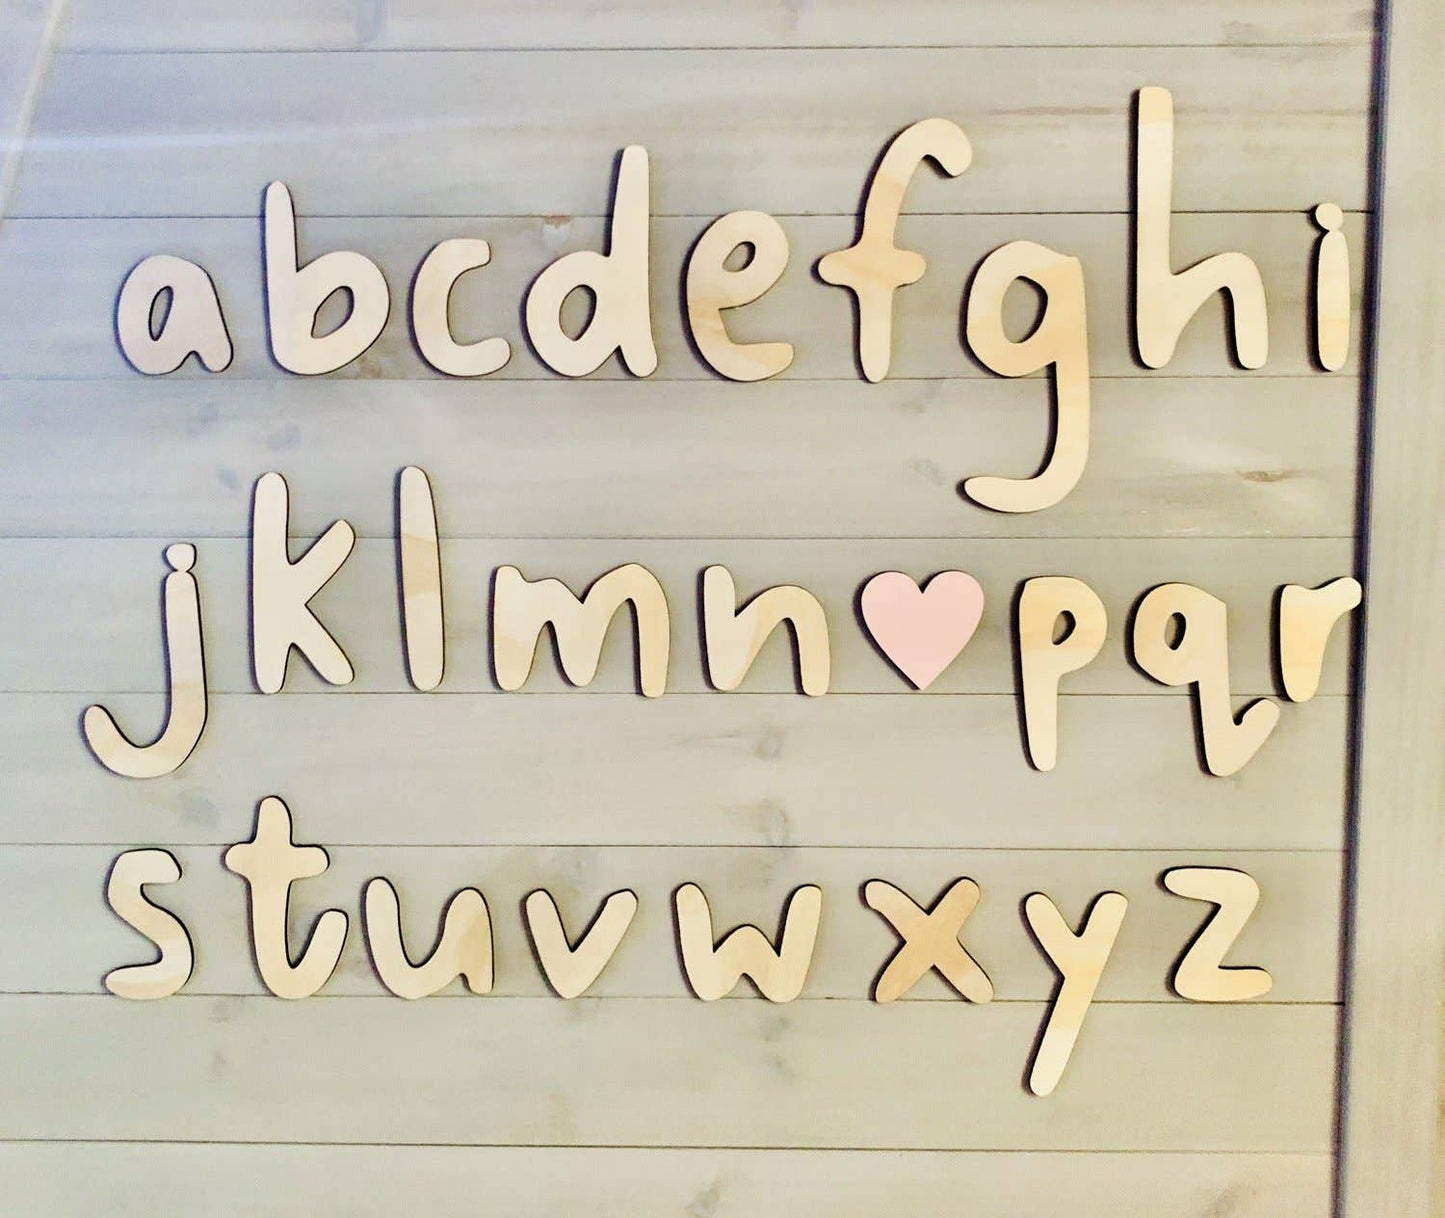 abcdefghi
jklmn♥pqr
stuvwxyz